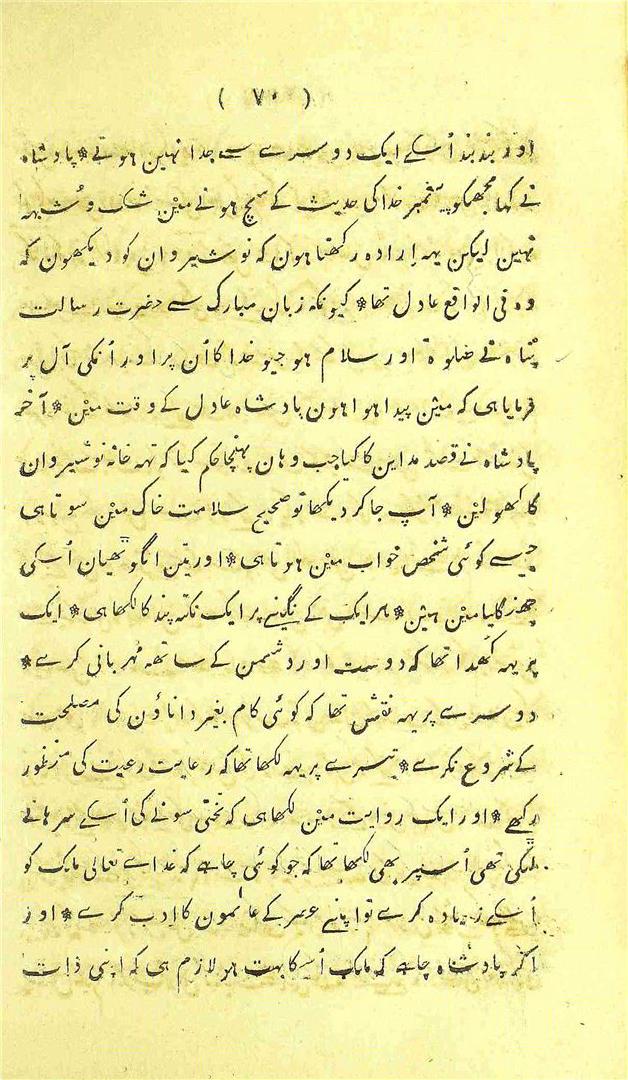 ( ۷۰ )
اور بند بند اُسکے ایک دوسرے سے جدا نہین ہوتے * پادشاہ
نے کہا مجھکو پیغمبر خدا کی حدیث کے سچ ہونے مین شک و شُبہہ
نہین لیکن یہہ اِرادہ رکھتا ہون کہ نوشیروان کو دیکھون کہ
وہ فی الواقع عادل تھا * کیونکہ زبان مبارک سے حضرت رسالت
پناہ نے صلوٰۃ اور سلام ہو جیو خدا کا اُن پر اور اُنکی آل پر
فرمایا ہی کہ مین پیدا ہوا ہون پادشاہ عادل کے وقت مین * آخر
پادشاہ نے قصد مداین کا کیا جب وہان پہنچا حکم کیا کہ تہہ خانہ نوشیروان
کا کھولین * آپ جا کر دیکھا تو صحیح سلامت خاک مین سوتا ہی
جیسے کوئی شخص خواب مین ہوتا ہی * اور تین انگوٹھیان اُسکی
چھنگلیا مین ہین * ہر ایک کے نگینے پر ایک نکتہ پند کا لکھا ہی * ایک
پر یہہ کُھدا تھا کہ دوست اور دشمن کے ساتھہ مُہربانی کرے *
دوسرے پر یہہ نقش تھا کہ کوئی کام بغیر داناؤن کی مصلحت
کے شروع نکرے * تیسرے پر یہہ لکھا تھا کہ رعایت رعیت کی منظور
رکھے * اور ایک روایت مین لکھا ہی کہ تختی سونے کی اُسکے سرہانے
لٹکی تھی اُسپر بھی لکھا تھا کہ جو کوئی چاہے کہ خداے تعالی مُلک کو
اُسکے زیادہ کرے تو اپنے عصر کے عالمون کا ادب کرے * اور
اگر پادشاہ چاہے کہ مُلک اُسکا بہت ہو لازم ہی کہ اپنی ذات